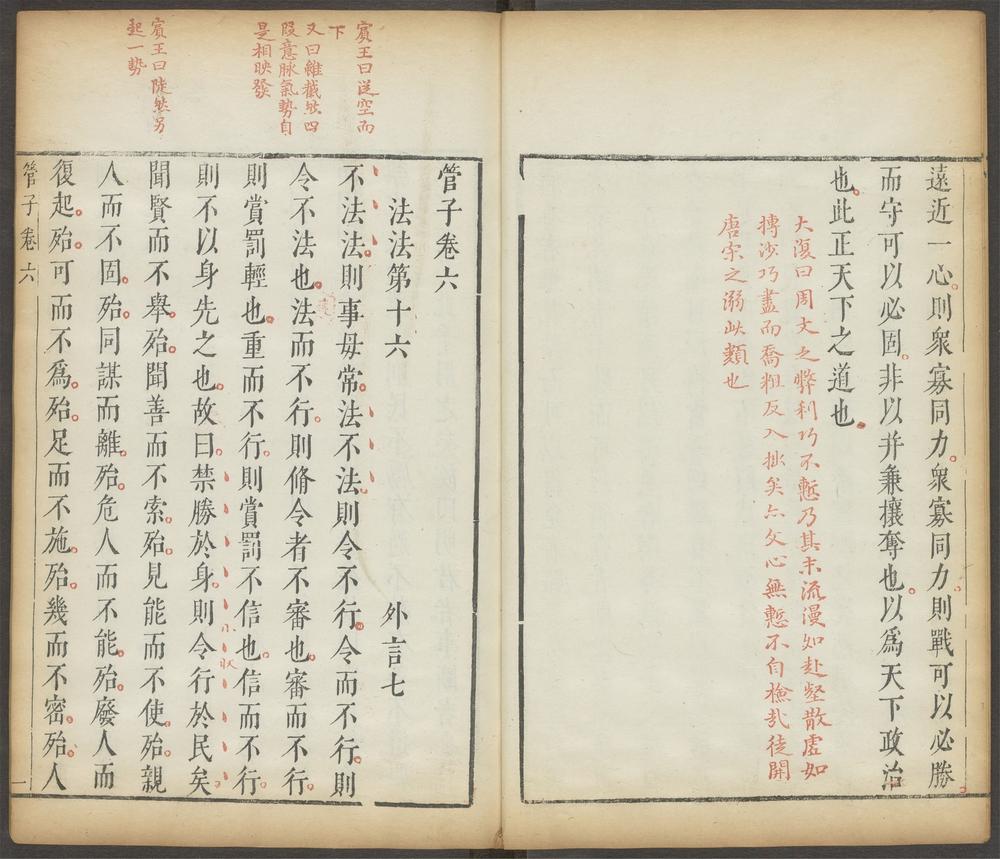 遠近一心則衆寡同力衆寡同力則戰可以必勝
而守可以必固非以并兼攘奪也以爲天下政治
也此正天下之道也
大復曰周文之弊利巧不慙乃其末流漫如赴壑散虛如
摶沙巧盡而喬粗反入排矣亦文心無慙不自檢哉徒開
唐宗之溺此纇也
賓王曰從空而
下
又曰雖截然四
段意脉氣勢自
是相映發
賓王曰陡然另
起一勢
管子卷六
法法第十六 外言七
不法法則事毋常法不法則令不行令而不行則
令不法也法而不行則脩令者不審也審而不行
則賞罰輕也重而不行則賞罰不信也信而不行
則不以身先之也故曰禁勝於身則令行於民矣
小收
聞賢而不舉殆聞善而不索殆見能而不使殆親
人而不固殆同謀而離殆危人而不能殆廢人而
復起殆可而不爲殆足而不施殆幾而不密殆人
管子卷六
一